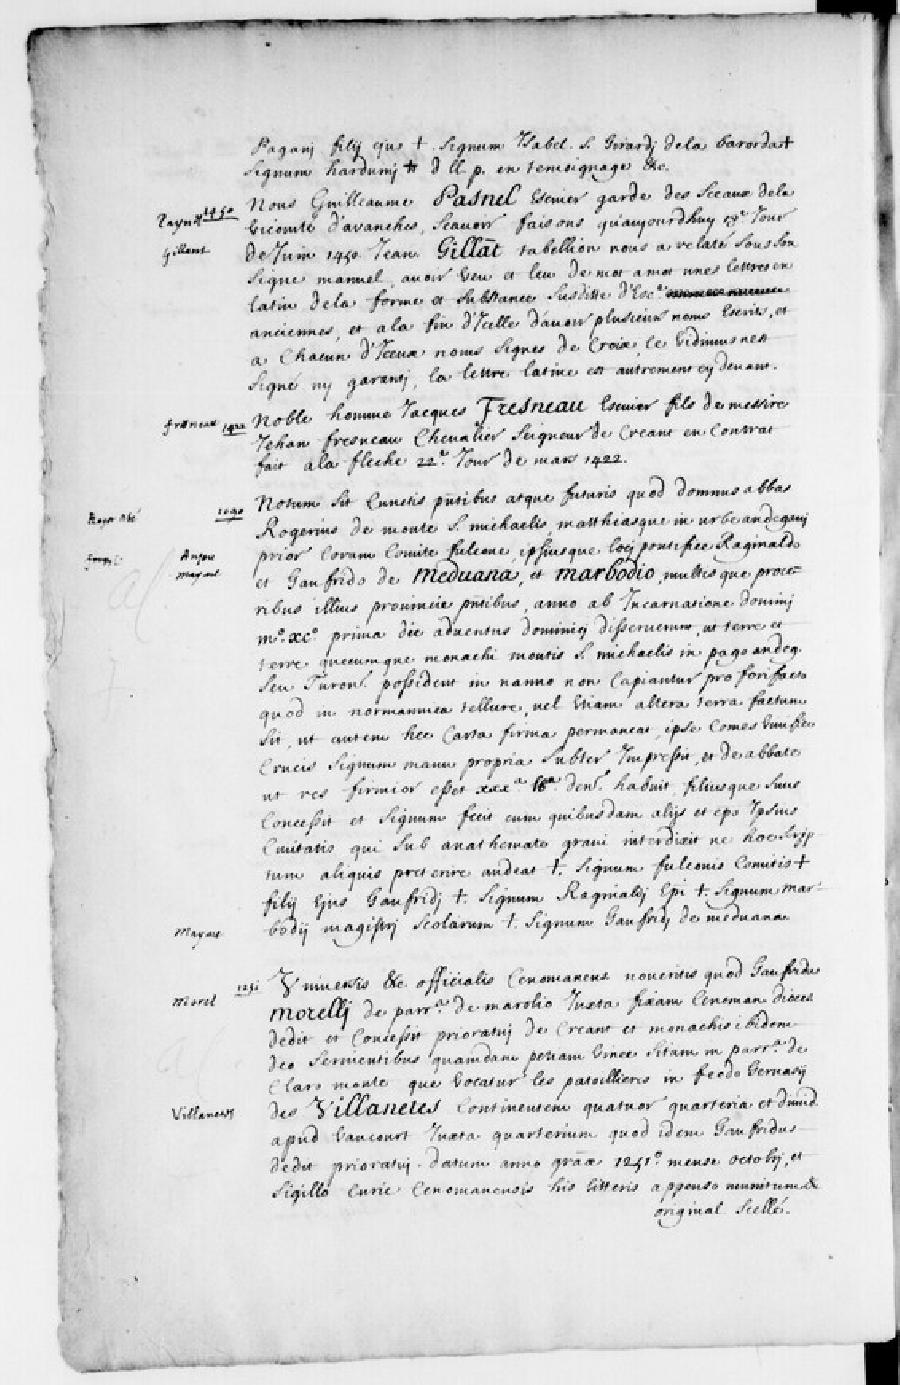 Paganj filij qus † Signum Ysabel. S. Girardj dela barorda †
Signum hardumj † d ll. p. en temoignage &c.
Nous Guilleaume Pasnel Escuier garde des Sceaux dela
1450
Vicomté d'avranches, Scauoir faisons qu'aujourdhuy 19e Jour
Gillaut
de Juin 1450 Jean Gillāt tabellion nous a relaté sous son
Signe manuel, auoir Veu et leu de mot amot unes lettres en
latin dela forme et Substance Susditte d'Esc.
anciennes, et ala fin d'Icelle d'auoir plusieurs noms Escrits, et
a Chacun d'Iceux noms Signes de Croix, le Vidimus nest
Signé ny garanty, la lettre latine est autrement cy deuant.
fresneau 1422 Noble homme Jacques Fresneau Escuier fils de messire
Jehan fresneau Cheualier Seigneur de Creant en Contrat
fait ala fleche 22e. Jour de mars 1422.
1090 Notum Sit Cunctis pn̄tibus atque futuris quod domnus abbas
Roger Abé
Rogerius de monte S. michaelis, matthiasque in urbe andegauj
Anjou prior Coram Comite fulcone, ipsiusque locj pontifice Raginaldo
mayene et Gaufrido de Meduana, et marbodio, multisque proce-
ribus illius prouincie pn̄tibus, anno ab Incarnatione dominj
m.o xc.o prima die aduentus dominicj disseruerunt, ut terre et
terre quecumque monachi montis S. michaelis in pago andeg.
Seu Turon. possident in nanno non Capiantur pro forifacto
quod in normannica tellure, uel Etiam altera terra factum
Sit, ut autem hec Carta firma permaneat, ipse Comes
Crucis Signum manu propria Subter Impressit, et de abbate
ut res firmior esset xxx.a lba. den. habuit, filiusque Suus
Concessit et Signum fecit cum quibusdam alijs et epo Ipsius
Ciuitatis qui Sub anathemate graui interdixit ne hoc Scrip-
tum aliquis preterire audeat †. Signum fulconis Comitis †
filij Ejus Gaufridj †. Signum Raginaldj Epi †. Signum mar-
Mayene bodij magistrj Scolarum †. Signum Gaufridj de meduana
1251 Vniuersis &c officialis Cenomanens noueritis quod Gaufridus
Morel morellj de parr.a de marolio Juxta fixam Cenoman dioces
dedit et Concessit prioratuj de Creant et monachis ibidem
deo Seruientibus quamdam petiam Vinee Sitam in parr.a de
Claro monte que Vocatur les patoillieres in feodo Geruasij
Villaneus des Villanetes Continentem quatuor quarteria et dimid
apud Vaucourt Juxta quarterium quod idem Gaufridus
dedit prioratuj. datum anno grāe 1251o mense octobrj, et
Sigillo Curie Cenomanensis his litteris appenso munitum &
original Scellé.